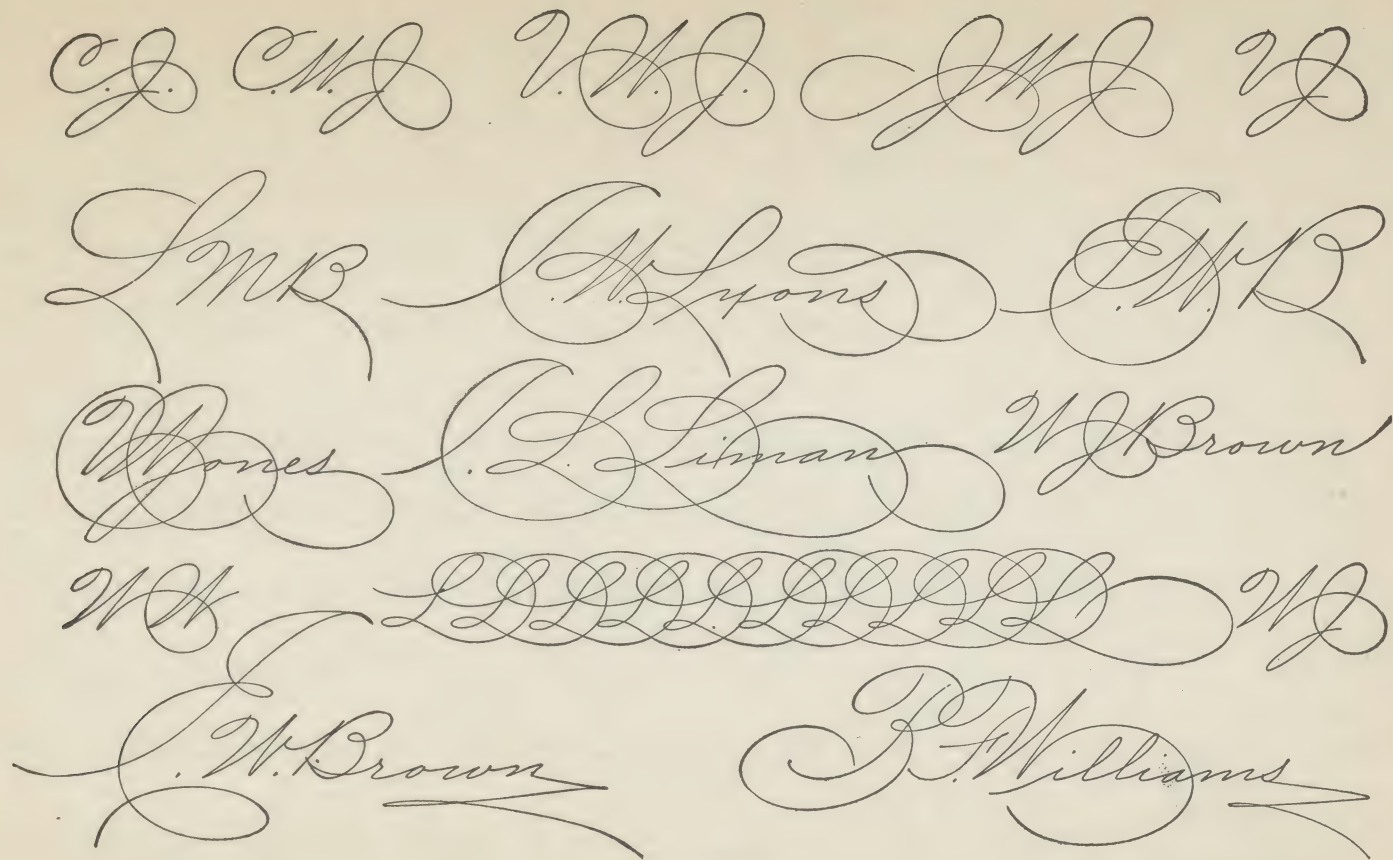 C.J. C.W.J. V.W.J. J W J V J
L M R C.W. Lyons C.W.R
W Jones C.L. Liman W J Brown
W W L L L L L L L L L L W J
C.W. Brown P.F. Williams